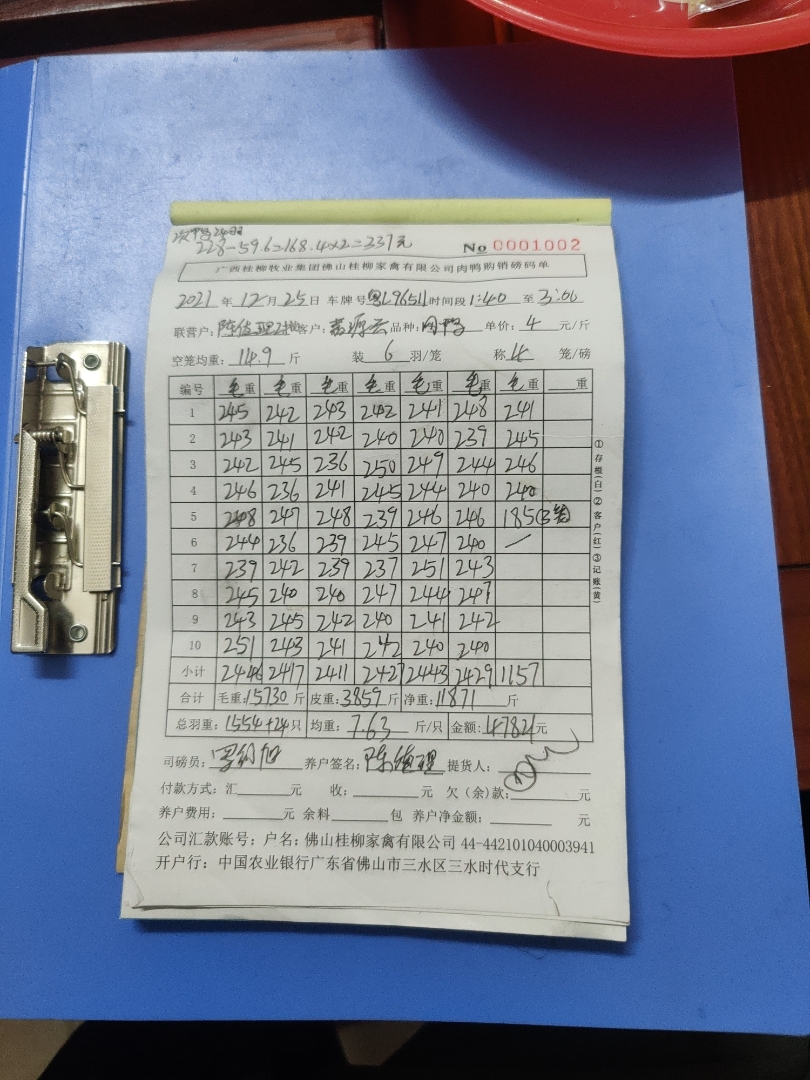 次鸭24羽
228-59.6=168.4×2=337元
No 0001002
广西桂柳牧业集团佛山桂柳家禽有限公司肉鸭购销磅码单
2021年12月25日 车牌号粤L96511时间段1:40 至3:00
联营户: 客户: 品种: 单价: 4 元/斤
空笼均重: 14.9 斤 装 6 羽/笼 称 4 笼/磅
编号 毛重 毛重 毛重 毛重 毛重 毛重 毛重 重
1 245 242 243 242 241 248 241
2 243 241 242 240 240 239 245
3 242 245 236 250 249 244 246
4 246 236 241 245 244 240 240
5 248 247 248 239 246 246 185(3笼)
6 244 236 239 245 247 240 /
7 239 242 239 237 251 243
8 245 240 240 247 244 247
9 243 245 242 240 241 242
10 251 243 241 242 240 240
小计 2446 2417 2411 2427 2443 2429 1157
合计 毛重:15730斤 皮重:3859斤 净重:11871 斤
总羽重: 1554+24只 均重: 7.63 斤/只 金额:47821元
司磅员: 养户签名: 提货人:
付款方式: 汇 元 收: 元 欠(余)款: 元
养户费用: 元 余料 包 养户净金额: 元
公司汇款账号: 户名: 佛山桂柳家禽有限公司 44-442101040003941
开户行: 中国农业银行广东省佛山市三水区三水时代支行
①存根(白)②客户(红)③记账(黄)